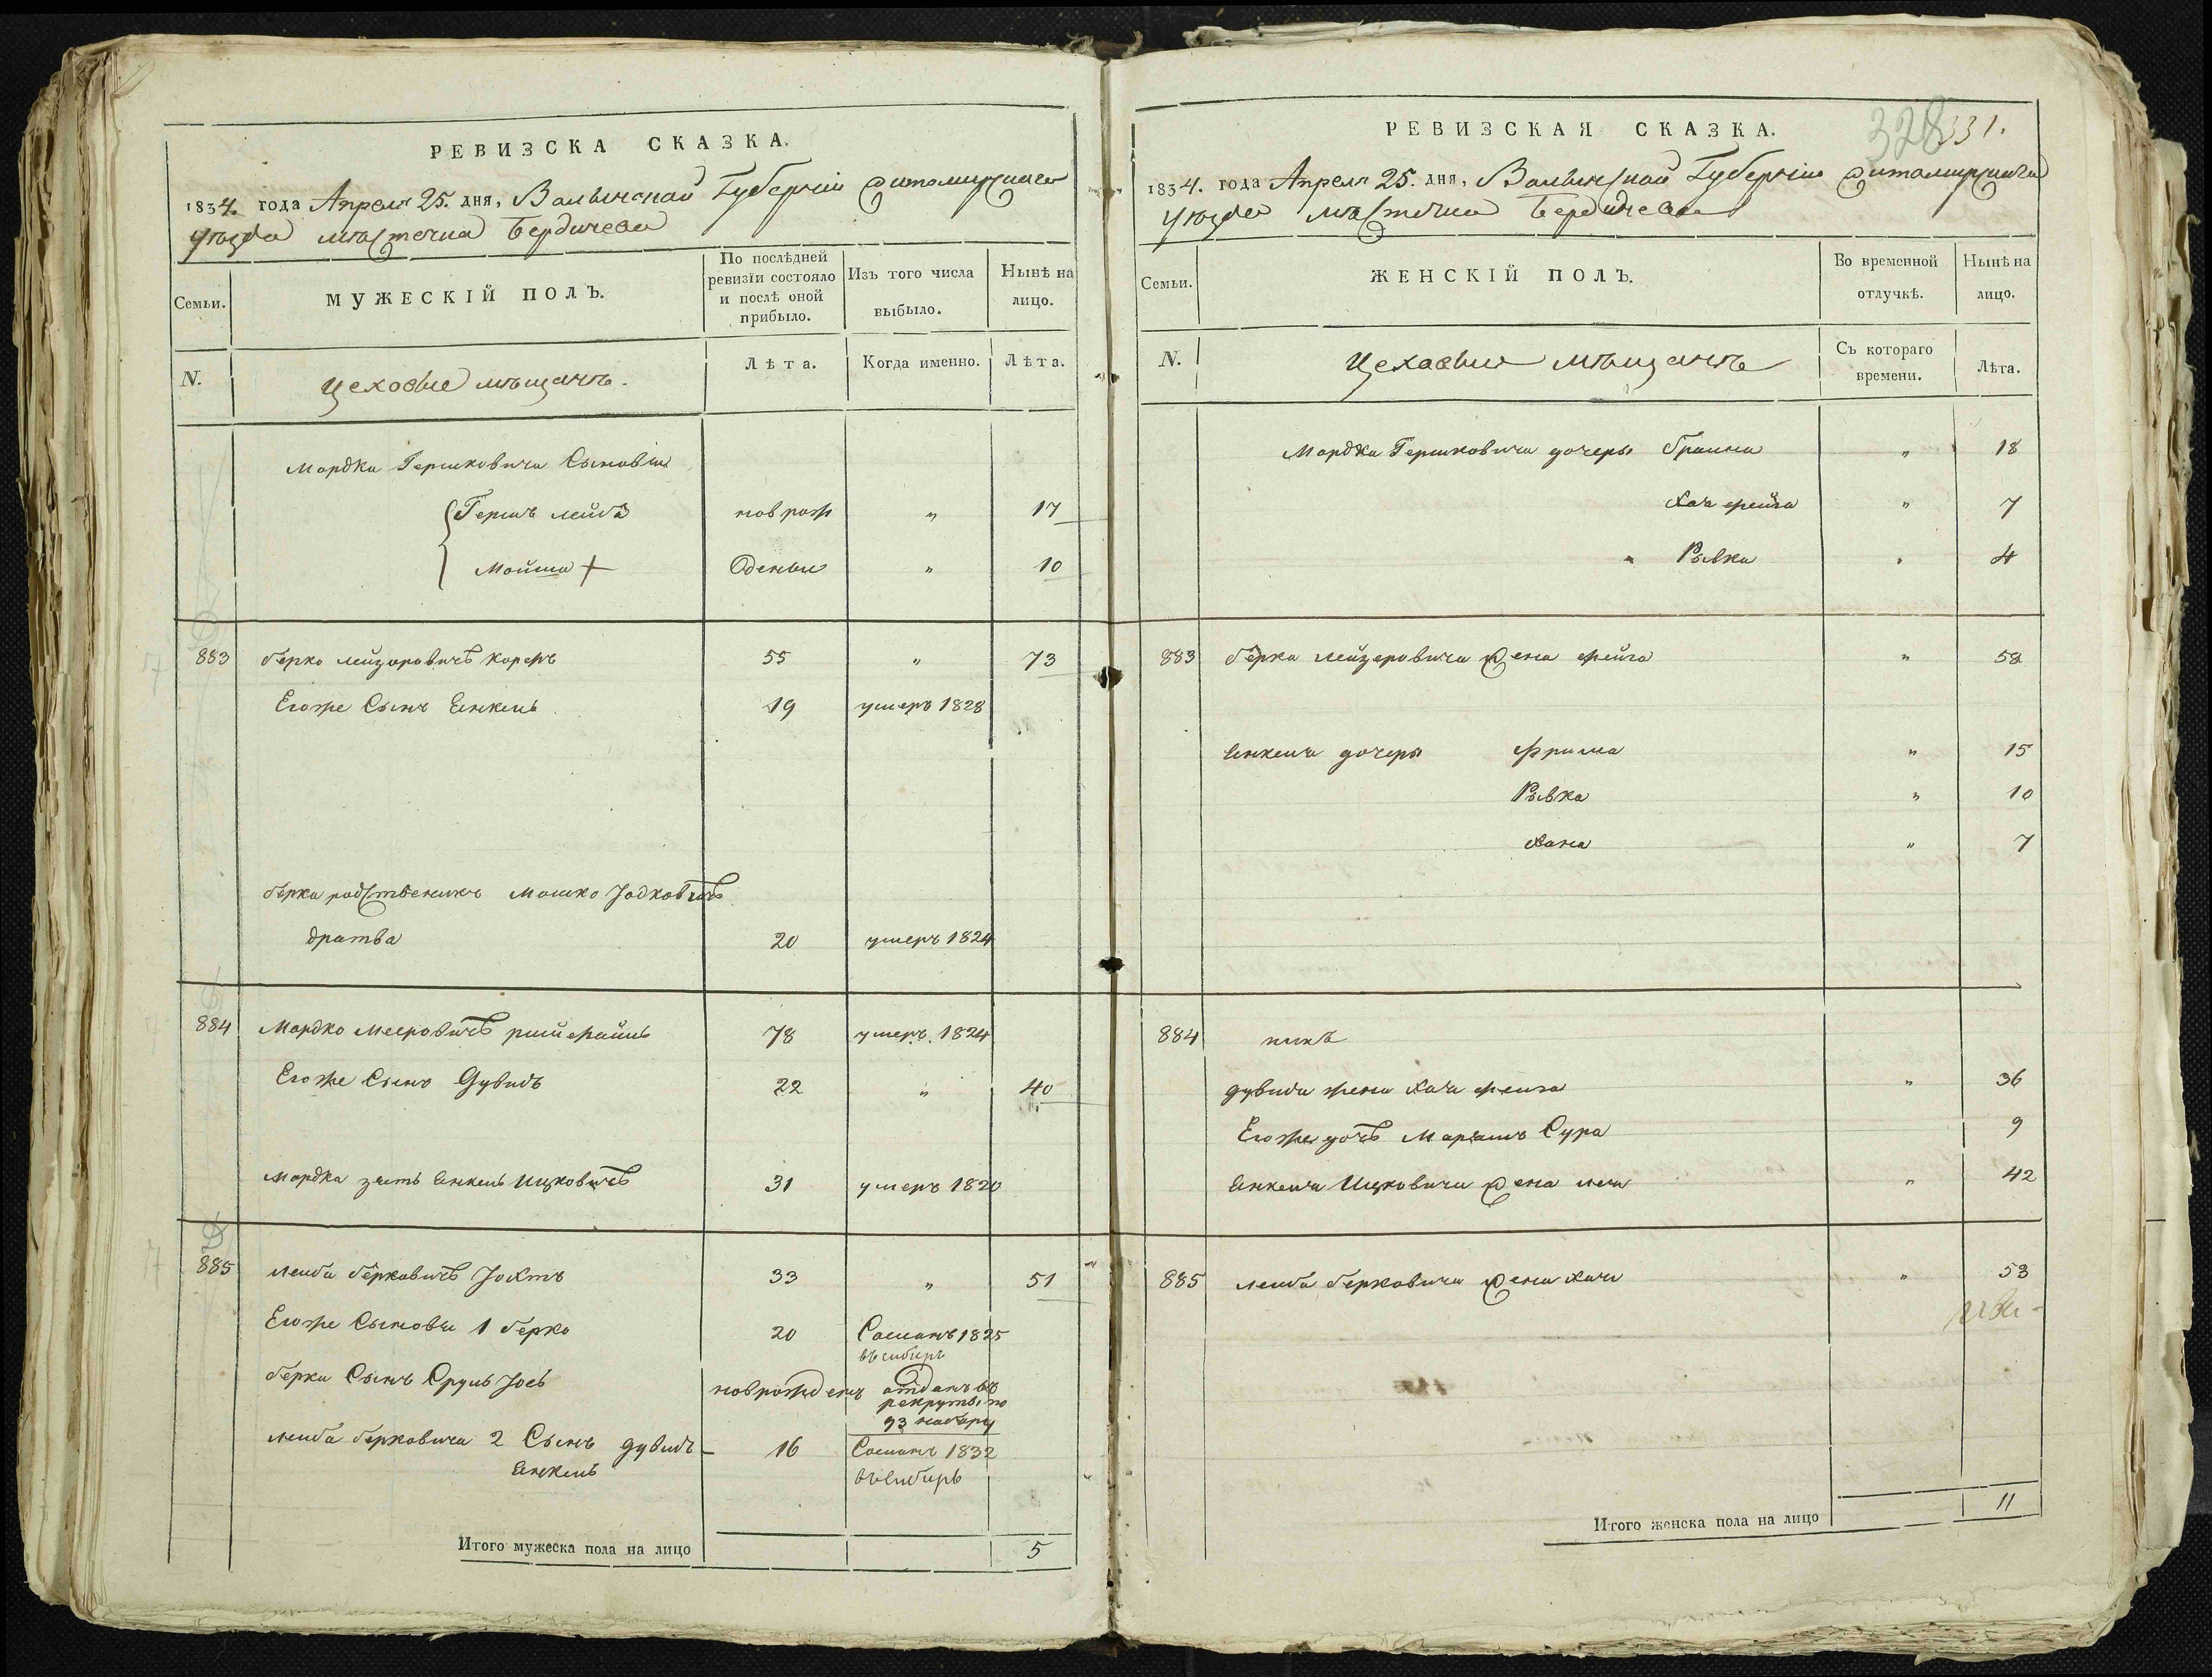 РЕВИЗСКА СКАЗКА.
1834. года Апреля 25. дня, Волынской Губернии Житомирскаго
уезда местечка Бердичева
Семьи.
МУЖЕСКІЙ ПОЛЪ.
По послѣдней
ревизіи состояло
и послѣ оной
прибыло.
Изъ того числа
выбыло.
Нынѣ на
лицо.
N.
Цеховые мѣщане.
Лѣта.
Когда именно.
Лѣта.
Мордка Гершковича Сыновья
Гершъ лейба новрож " 17
Мойша + Оденье " 10
883 берко лейзоровичъ " 55 73
Егоже Сынъ Енкель 19 умеръ 1828
берка родственикъ Мошко Іодковичъ
дратва 20 умеръ 1824
884 Мордко Мееровичъ 78 умеръ 1824
Егоже Сынъ Дувидъ 22 " 40
Мордка зять Енкель Ицковичъ 31 умеръ 1820
885 лейба берковичъ 33 " 51
Егоже Сыновья 1 берко 20 Сосланъ 1825
въ сибирь
берки Сынъ Сруль Іось новрожденъ отданъ въ
рекруты по
93 набору
лейба берковича 2 Сынъ дувидъ – 16 Сосланъ 1832
Енкель въ сибирь
Итого мужеска пола на лицо 5
РЕВИЗСКАЯ СКАЗКА.
328 331.
1834. года Апреля 25. дня, Волынской Губернии Житомирскаго
уезда местечка Бердичева
Семьи.
ЖЕНСКІЙ ПОЛЪ.
Во временной
отлучкѣ.
Нынѣ на
лицо.
N.
Цеховые мѣщане
Съ котораго
времени.
Лѣта.
Мордка Гершковича дочеры браина " 18
Хая фейга " 7
" Рывка " 4
883 берка лейзеровича жена фейга " 58
Енкеля дочеры Фрима " 15
Рывка " 10
Хана " 7
884
дувида жена Хая фейга " 36
Егоже дочь Марьямъ Сура 9
Енкеля Ицковича жена лея " 42
885 лейба берковича жена Хая " 53
Итого женска пола на лицо 11